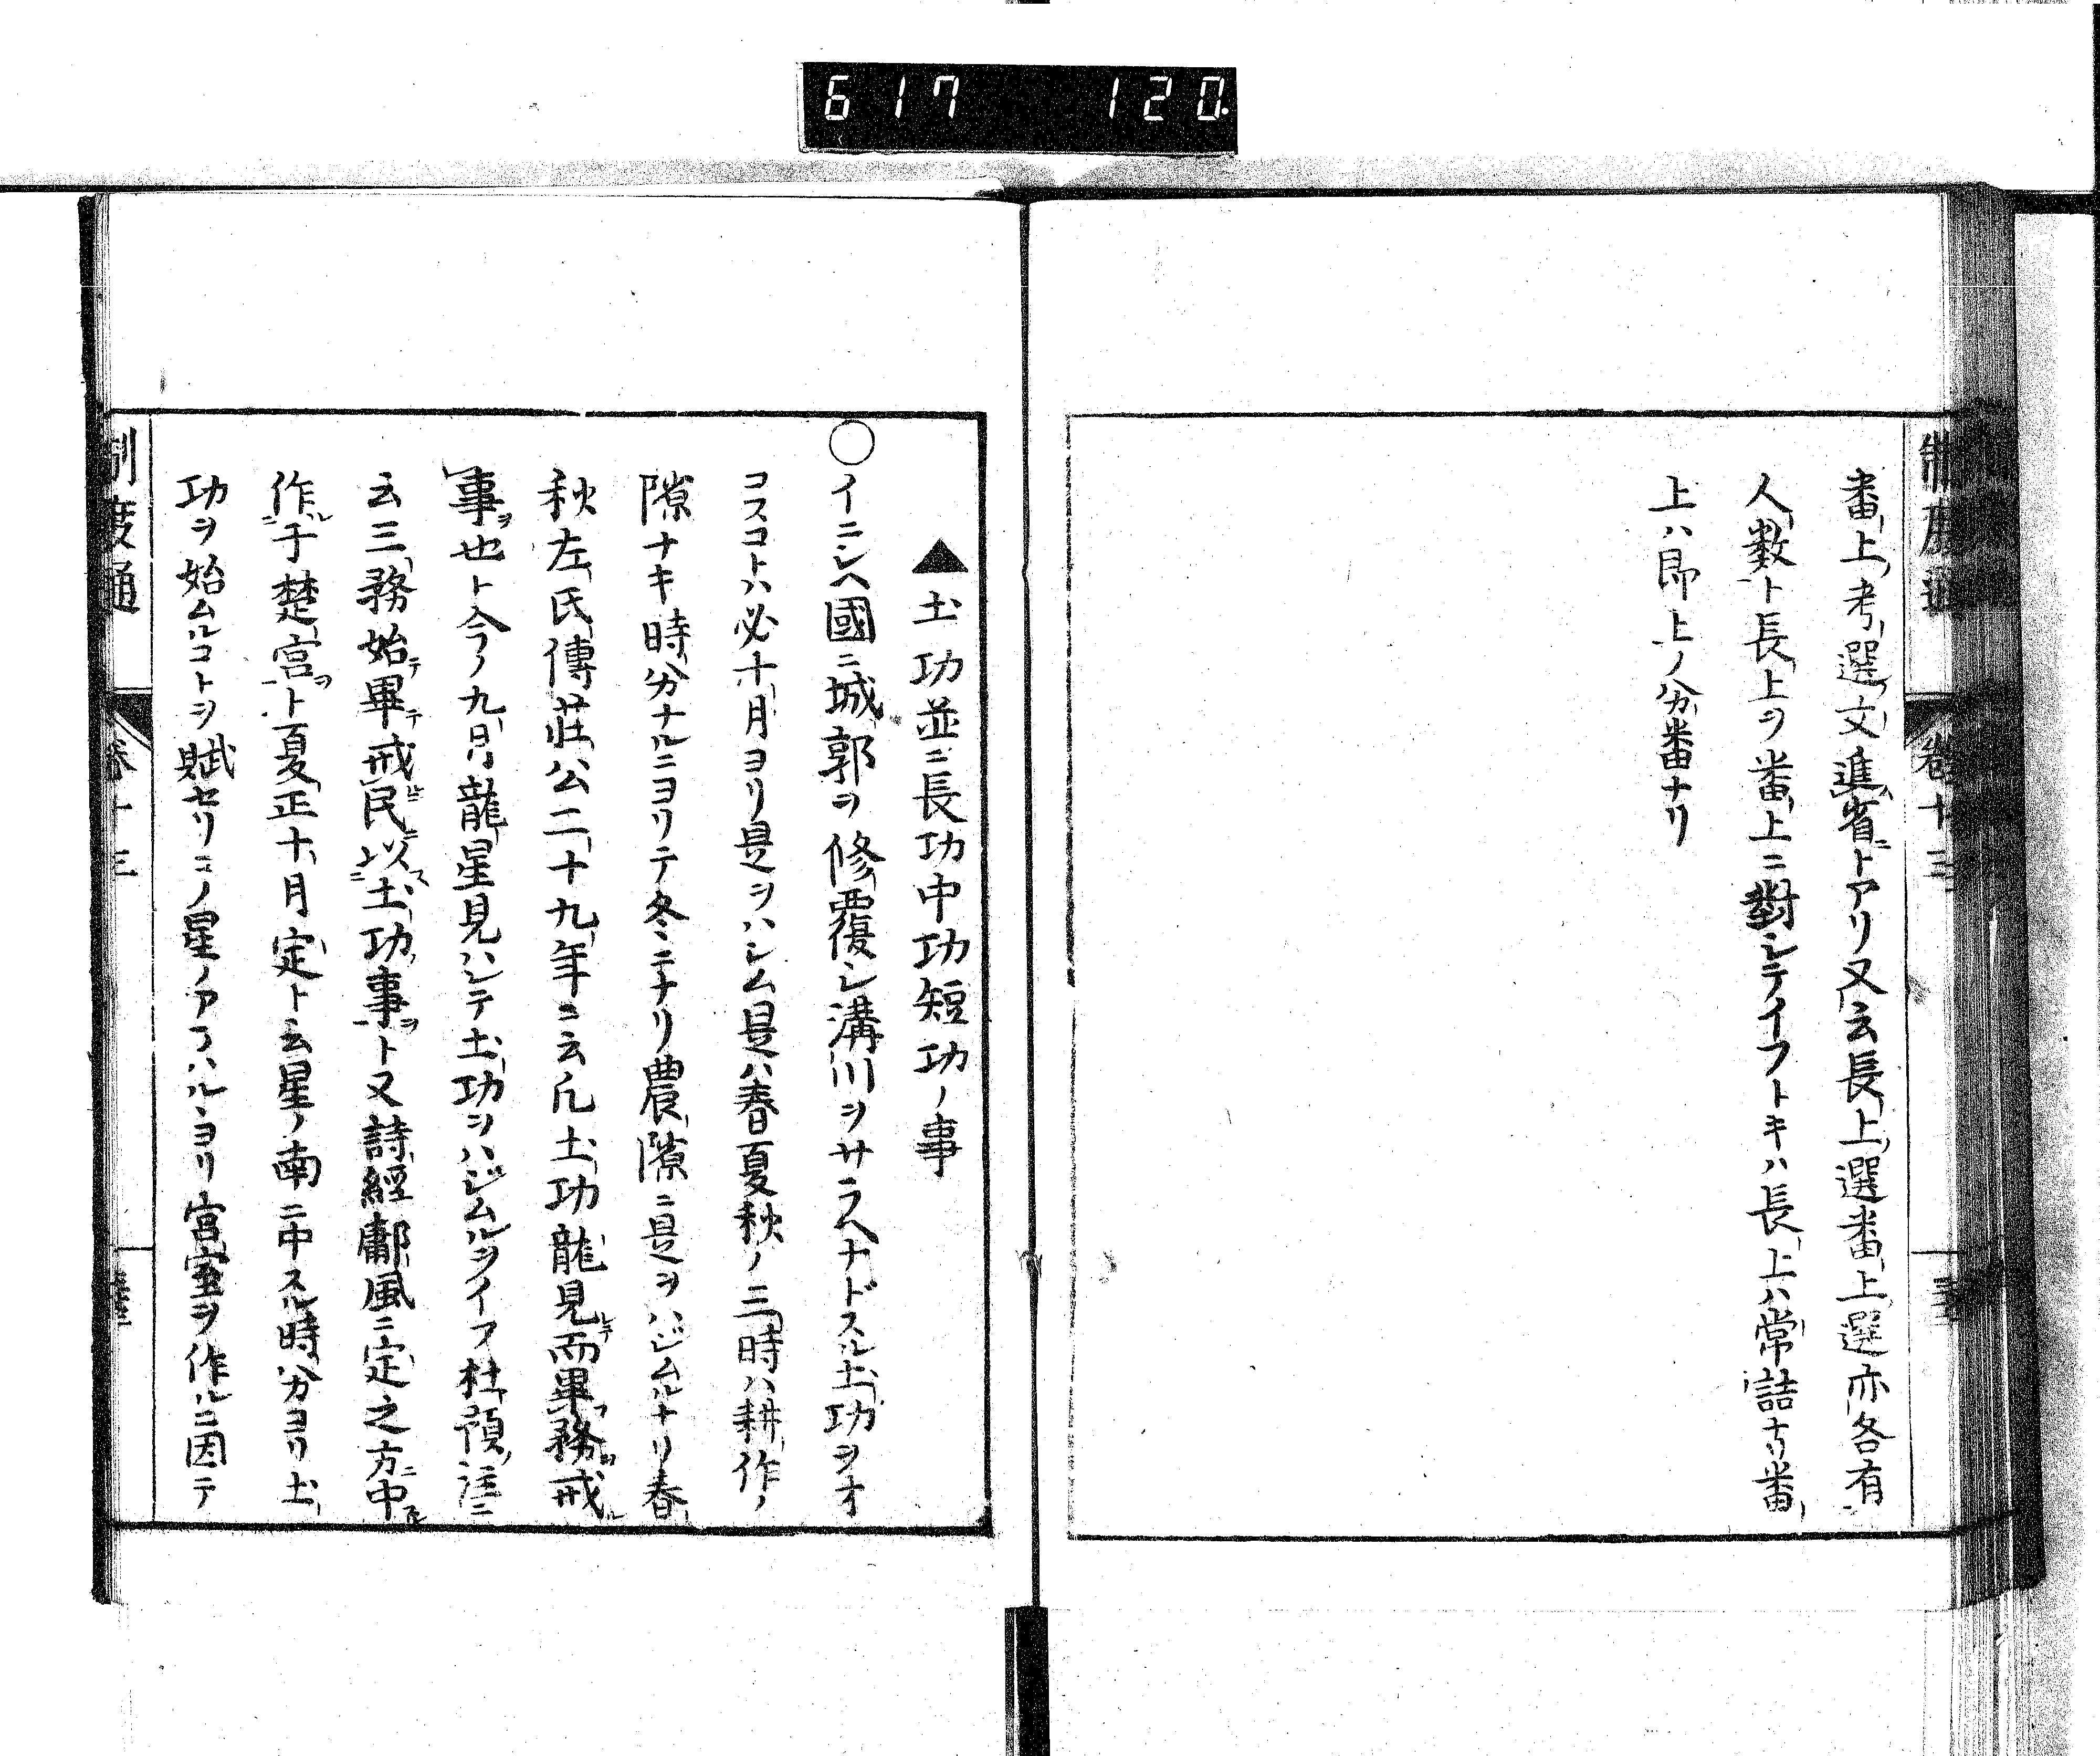 617 120.
制度通 卷十三
番上考選文進省トアリ又云長上選番上選亦各有
人數ト長上ヲ番上ニ對シテイフトキハ長上ハ常詰ナリ番
上ハ即上ノ分番ナリ
▲土功並ニ長功中功短功ノ事
○イニシヘ國ニ城郭ヲ修覆シ溝川ヲサラヘナドスル土功ヲオ
コスコトハ必十月ヨリ是ヲハシム是ハ春夏秋ノ三時ハ耕作ノ
隙ナキ時分ナルニヨリテ冬ニナリ農隙ニ是ヲハジムルナリ春
秋左氏傳莊公二十九年ニ云凡土功龍見而畢務戒
事也ト今ノ九月龍星見ハレテ土功ヲハジムルヲイフ杜預注ニ
云三務始畢戒民以土功事ト又詩經鄘風ニ定之方中
作于楚宮ト夏正十月定ト云星ノ南ニ中スル時分ヨリ土
功ヲ始ムルコトヲ賦セリコノ星ノアラハルヽヨリ宮室ヲ作ルニ因テ
制度通 卷十三